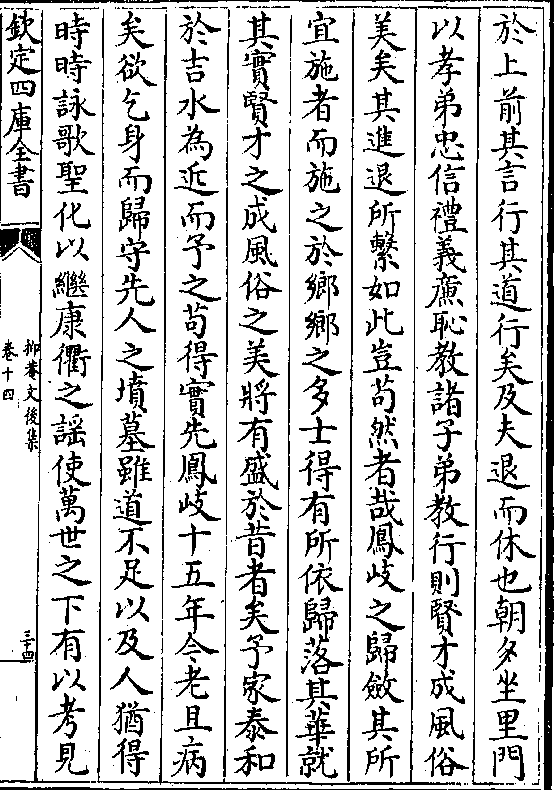 於上前其言行其道行矣及夫退而休也朝夕坐里門
以孝弟忠信禮義廉恥教諸子弟教行則賢才成風俗
美矣其進退所繫如此豈苟然者哉鳳岐之歸斂其所
宜施者而施之於鄉鄉之多士得有所依歸落其華就
其實賢才之成風俗之美將有盛於昔者矣予家泰和
於吉水為近而予之苟得實先鳳岐十五年今老且病
矣欲乞身而歸守先人之墳墓雖道不足以及人猶得
時時詠歌聖化以繼康衢之謡使萬世之下有以考見
欽定四庫全書
抑菴文後集
卷十四
三十四